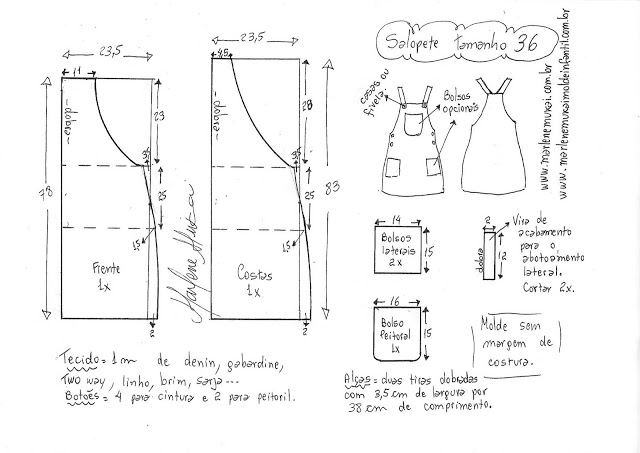 Salopete tamanho 36
23,5
11
dobra
23
78
25
3
1,5
Frente
1x
2
23,5
4,5
dobra
28
83
25
3
1,5
Costas
1x
2
Marlene Mukai
casas ou
fivela.
Bolsos
opcionais
www.marlenemukai.com.br
www.marlenemukaimoldeinfantil.com.br
14
Bolsos
laterais
2x
15
2
dobra
12
Vira de
acabamento
para o
abotoamento
lateral.
Cortar 2x.
16
Bolso
peitoral
1x
15
Molde sem
margem de
costura.
Tecido = 1 m de denin, gabardine,
Two way, linho, brim, sarja...
Botões = 4 para cintura e 2 para peitoril.
Alças = duas tiras dobradas
com 3,5 cm de largura por
38 cm de comprimento.